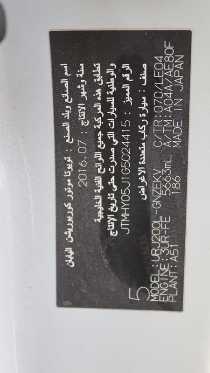 اسم الصانع وبلد الصنع : تويوتا موتور كوربوريشن اليابان
سنة وشهر الانتاج : 2016.07
تطابق هذه المركبة جميع اللوائح الفنية الخليجية
والوطنية للسيارات التي صدرت حتى تاريخ الإنتاج
الرقم المميز : JTMHY05J1G5024415
صنف : سيارة ركاب متعددة الاغراض
5
MODEL:URJ200L-GNZEKV C/TR:070/LE04
ENGINE:3UR-FE 5663mL A/TM:-04A/AE80F
PLANT:A51 T86 MADE IN JAPAN